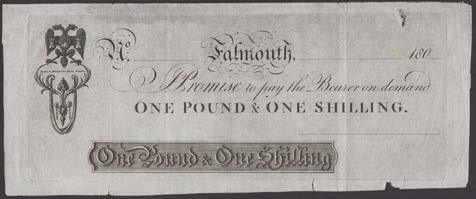 No. Falmouth, 180
I Promise to pay the Bearer on demand
ONE POUND & ONE SHILLING.
One Pound & One Shilling